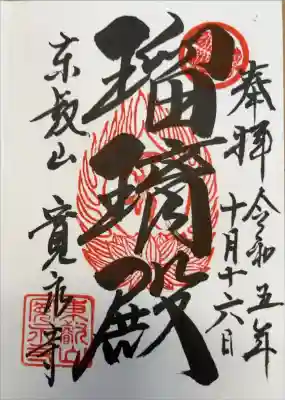 奉拝 令和五年
十月十六日
瑠璃殿
東叡山 寛永寺